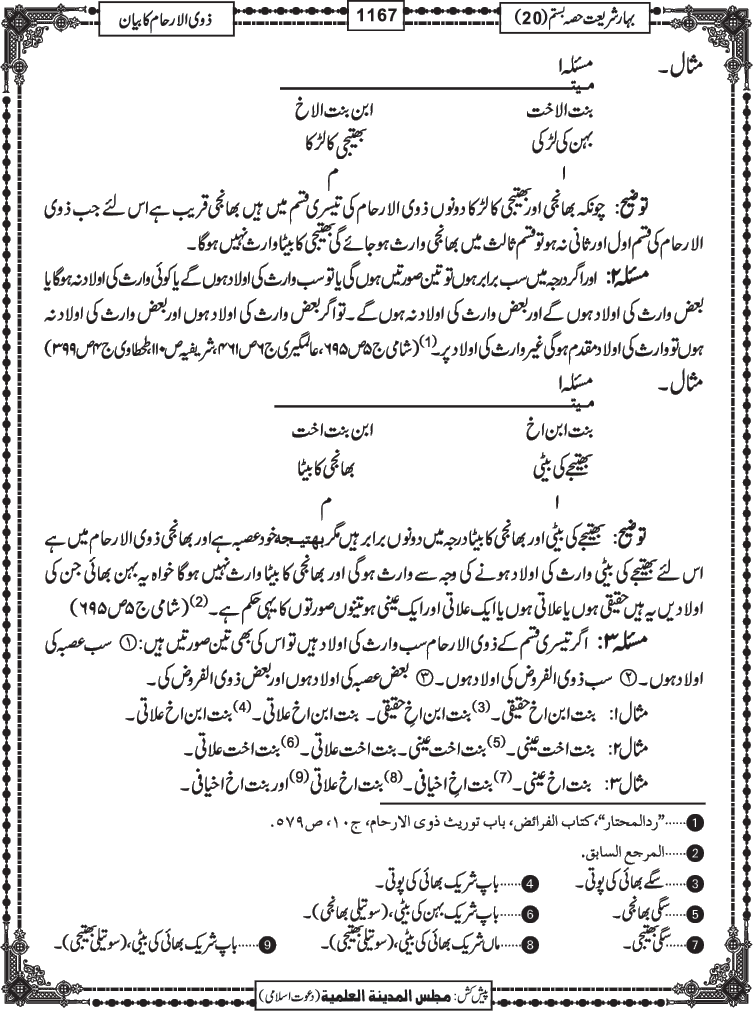 بہار شریعت حصہ بستم (20)
1167
ذوی الارحام کا بیان
مثال۔ مسئلہ ۱
میتـــــ
بنت الاخت ابن بنت الاخ
بہن کی لڑکی بھتیجی کا لڑکا
۱ م
توضیح: چونکہ بھانجی اور بھتیجی کا لڑکا دونوں ذوی الارحام کی تیسری قسم میں ہیں بھانجی قریب ہے اس لئے جب ذوی
الارحام کی قسم اول اور ثانی نہ ہو تو قسم ثالث میں بھانجی وارث ہو جائے گی بھتیجی کا بیٹا وارث نہیں ہوگا۔
مسئلہ ۲: اور اگر درجہ میں سب برابر ہوں تو تین صورتیں ہوں گی یا تو سب وارث کی اولاد ہوں گے یا کوئی وارث کی اولاد نہ ہوگا یا
بعض وارث کی اولاد ہوں گے اور بعض وارث کی اولاد نہ ہوں گے۔ تو اگر بعض وارث کی اولاد ہوں اور بعض وارث کی اولاد نہ
ہوں تو وارث کی اولاد مقدم ہوگی غیر وارث کی اولاد پر۔(1) (شامی ج۵ ص۶۹۵، عالمگیری ج۶ ص۴۶۱، شریفیہ ص۱۱۰، طحطاوی ج۴ ص۳۹۹)
مثال۔ مسئلہ ۱
میتـــــ
بنت ابن اخ ابن بنت اخت
بھتیجے کی بیٹی بھانجی کا بیٹا
۱ م
توضیح: بھتیجے کی بیٹی اور بھانجی کا بیٹا درجہ میں دونوں برابر ہیں مگر بھتیجہ خود عصبہ ہے اور بھانجی ذوی الارحام میں ہے
اس لئے بھتیجے کی بیٹی وارث کی اولاد ہونے کی وجہ سے وارث ہوگی اور بھانجی کا بیٹا وارث نہیں ہوگا خواہ یہ بہن بھائی جن کی
اولادیں یہ ہیں حقیقی ہوں یا علاتی ہوں یا ایک علاتی اور ایک عینی ہو تینوں صورتوں کا یہی حکم ہے۔(2) (شامی ج۵ ص۶۹۵)
مسئلہ ۳: اگر تیسری قسم کے ذوی الارحام سب وارث کی اولاد ہیں تو اس کی بھی تین صورتیں ہیں: ① سب عصبہ کی
اولاد ہوں۔ ② سب ذوی الفروض کی اولاد ہوں۔ ③ بعض عصبہ کی اولاد ہوں اور بعض ذوی الفروض کی۔
مثال ۱: بنت ابن اخ حقیقی۔(3) بنت ابن اخِ حقیقی۔ بنت ابن اخ علاتی۔(4) بنت ابن اخ علاتی۔
مثال ۲: بنت اخت عینی۔(5) بنت اخت عینی۔ بنت اخت علاتی۔(6) بنت اخت علاتی۔
مثال ۳: بنت اخ عینی۔(7) بنت اخِ اخیافی۔(8) بنت اخ علاتی(9) اور بنت اخ اخیافی۔
1 ......"ردالمحتار"، کتاب الفرائض، باب توریث ذوی الارحام، ج۱۰، ص۵۷۹.
2 ......المرجع السابق.
3 ......سگے بھائی کی پوتی۔ 4 ......باپ شریک بھائی کی پوتی۔
5 ......سگی بھانجی۔ 6 ......باپ شریک بہن کی بیٹی، (سوتیلی بھانجی)۔
7 ......سگی بھتیجی۔ 8 ......ماں شریک بھائی کی بیٹی، (سوتیلی بھتیجی)۔ 9 ......باپ شریک بھائی کی بیٹی، (سوتیلی بھتیجی)۔
پیش کش: مجلس المدینة العلمیة (دعوت اسلامی)